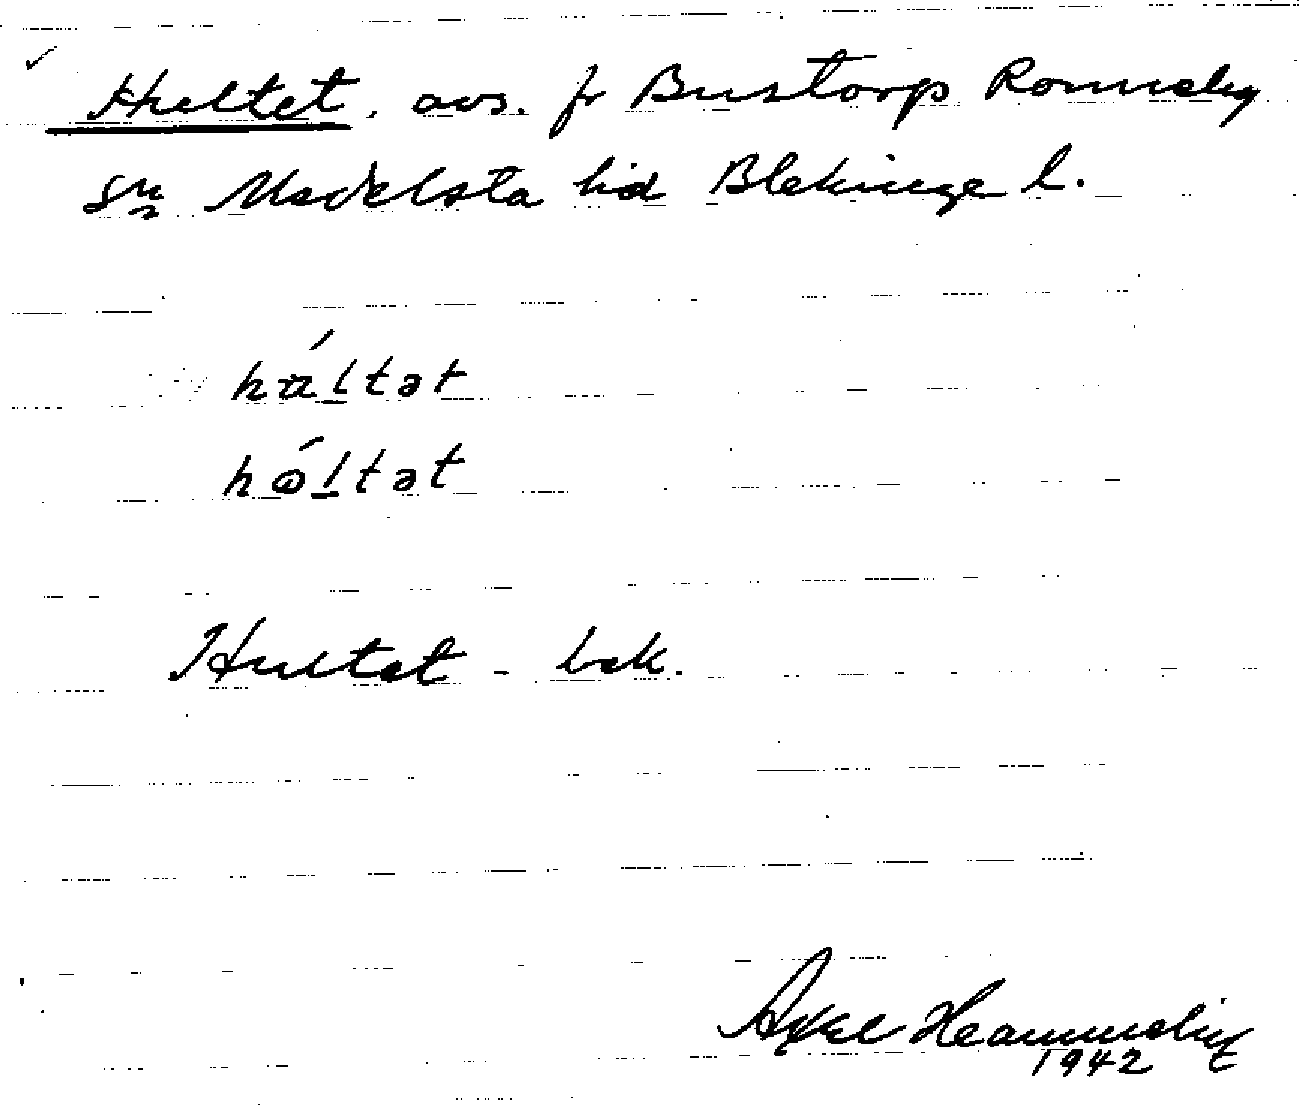 Hultet, avs. fr Bustorp Ronneby
sn Medelsta hd Blekinge l.
háltət
hóltət
Hultet - bek.
Axel
1942